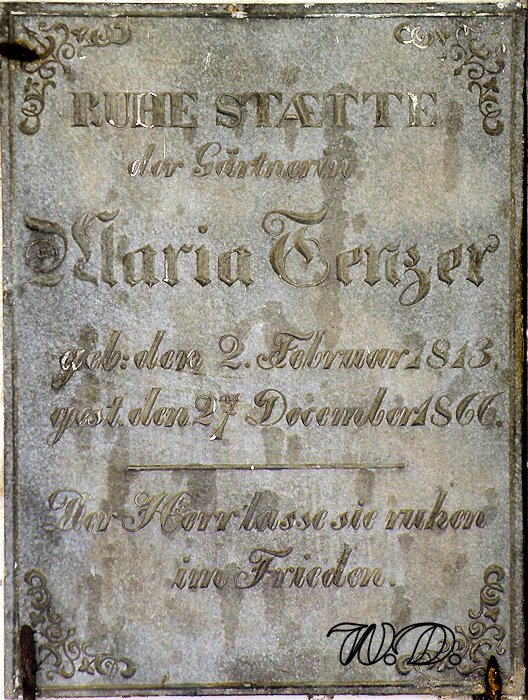 RUHE STÆTTE
der Gärtnerin
Maria Tenzer
geb: den 2. Februar 1813.
gest. den 27 December 1866.
Der Herr lasse sie ruhen
im Frieden.
W. D.